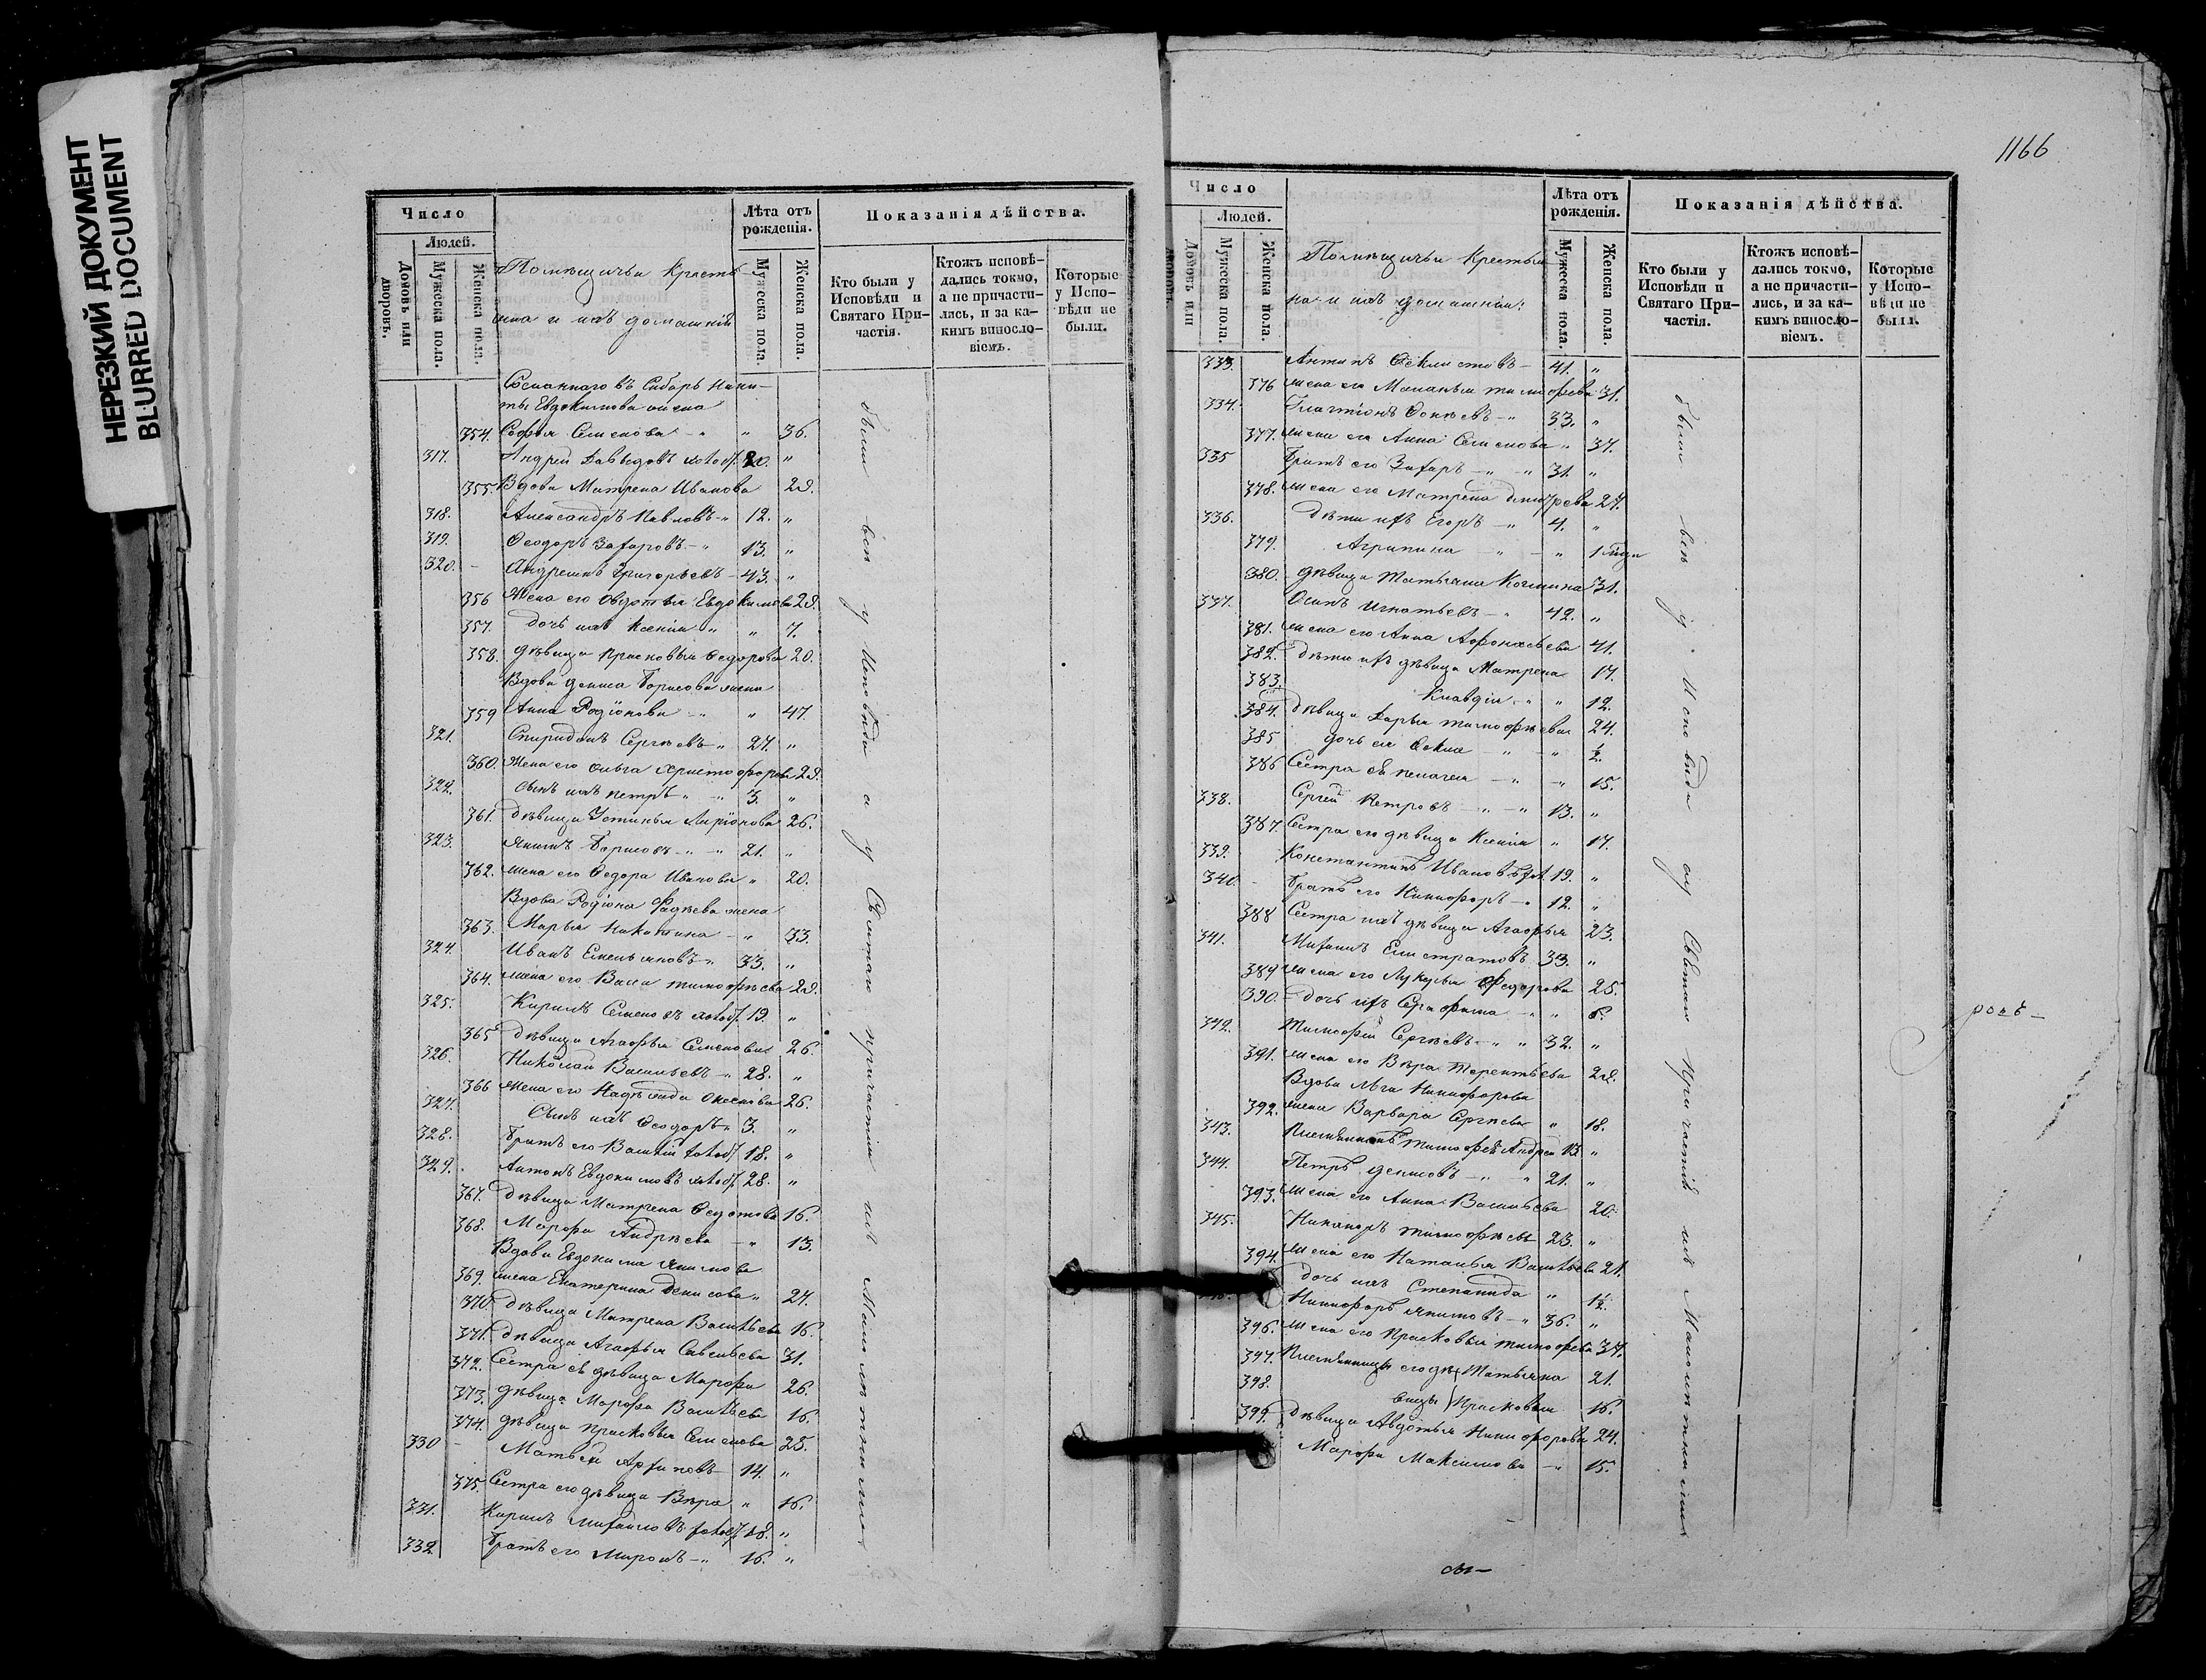 НЕРЕЗКИЙ ДОКУМЕНТ
BLURRED DOCUMENT
Число
Людей.
Домовъ или дворовъ.
Мужеска пола.
Женска пола.
Помѣщичьи Крестья-
не и ихъ домашнiи
Лѣта отъ рожденiя.
Мужеска пола.
Женска пола.
Показанiя дѣйства.
Кто были у Исповѣди и Святаго Причастiя.
Ктожъ исповѣдались токмо, а не причастились, и за какимъ винословiемъ.
Которые у Исповѣди не были.
Сосланнаго въ Сибирь Ники-
ты Евдокимова жена
354. Софья Семенова - " " 36.
317. Андрей Давыдовъ холост. 20. "
355. Вдова Матрена Иванова 28.
318. Александръ Павловъ - " 12. "
319. Ѳеодоръ Захаровъ - " 13. "
320. - Григорьевъ - 43. "
356 Жена его Овдотья Евдокимова 28.
357. дочь ихъ Ксенiя " " 7.
358. дѣвица Прасковья Ѳедорова 20.
Вдова Дениса Борисова жена
359 Анна Родiонова - " " 47.
321. Спиридонъ Сергѣевъ - " 27. "
360. Жена его Ольга Христофорова 28.
322. сынъ ихъ Петръ " - " 3. "
361. дѣвица Устинья Ларiонова 26.
323. Якимъ Борисовъ - " - " 21. "
362. жена его Ѳедора Иванова " 20.
Вдова Родiона Фадѣева жена
363. Марья Никитина - " 33.
324. Иванъ Емельяновъ - " 33. "
364. жена его Васса Тимофѣева 28.
325. Кирилъ Семеновъ холост. 19. "
365 дѣвица Агафья Семенова 26.
326. Николай Васильевъ - " 28. "
366 жена его Надежда 26.
327. Сынъ ихъ Ѳеодоръ " 3. "
328. Братъ его Василiй холост. 18. "
329. Антонъ Евдокимовъ холост. 28. "
367. дѣвица Матрена Ѳедотова 16.
368. Марфа Андрѣева - " 13.
Вдова Евдокима Якимова
369. жена Екатерина Денисова " 27.
370. дѣвица Матрена Васильева 16.
371. дѣвица Агафья Савельева 31.
372. Сестра ея дѣвица Марфа 26.
373. дѣвица Марфа Васильева 16.
374. дѣвица Прасковья Семенова 25.
330 - Матвей Архиповъ - 14. "
375. Сестра его дѣвица Вѣра " 16.
331. Кирилъ Михайловъ холост. 18. "
332 Братъ его Миронъ - " 16. "
были всѣ у Исповѣди а у Святаго причастiя ихъ Малолѣтними
1166
Число
Людей.
Домовъ или дворовъ.
Мужеска пола.
Женска пола.
Помѣщичьи Крестья
не и ихъ домашнiи:
Лѣта отъ рожденiя.
Мужеска пола.
Женска пола.
Показанiя дѣйства.
Кто были у Исповѣди и Святаго Причастiя.
Ктожъ исповѣдались токмо, а не причастились, и за какимъ винословiемъ.
Которые у Исповѣди не были.
333. Антипъ Ѳеклистовъ - 41. "
376 жена его Маланья Тимофѣева 31.
334. Платонъ - " 33. "
377. жена его Анна Семенова " 37.
335 Братъ его Захаръ - " - " 31. "
378. жена его Матрена 27.
336. дѣти ихъ Егоръ - " 4. "
379. Агрипина - " - " 1
380. дѣвица Татьяна Козмина 31.
337. Осипъ Игнатьевъ - " 42. "
381. жена его Анна Афонасьева 41.
382. дѣти ихъ дѣвица Матрена 17.
383. Клавдiя - " " 12.
384. дѣвица Дарья Тимофѣева 24.
385 дочь ея Ѳекла - " - " ½.
386 Сестра ея Пелагея - " - " 15.
338. Сергей Петровъ - " - " 13. "
387. Сестра его дѣвица Ксенiя " 17.
339. Константинъ Ивановъ хол. 19. "
340. Братъ его Никифоръ - " 12. "
388 Сестра ихъ дѣвица Агафья 23.
341. Михаилъ Елистратовъ 33. "
389 жена его Лукерья Ѳедорова 25.
390. дочь ихъ Серафима - " " 6.
342. Тимофей Сергѣевъ - " " 32. "
391. жена его Вѣра Терентьева 28.
Вдова Никифорова
392. жена Варвара Сергѣева " 18.
343. Племянникъ Тимофей Андреи 13 "
344. Петръ Денисовъ - " - " 21. "
393. жена его Анна Васильева 20.
345. Никаноръ Тимофѣевъ 23. "
394. жена его Наталья Васильева 21.
дочь ихъ Степанида " 1½.
Никифоръ Якимовъ - " 36. "
396. жена его Прасковья Тимофѣева 37.
397. Племянницы его дѣ- Татьяна 21.
398. вицы Прасковья 16.
399. дѣвица Авдотья Никифорова 24.
Марфа Максимова - " 15.
были всѣ у Исповѣди а у Святаго Причастiя ихъ Малолѣтними